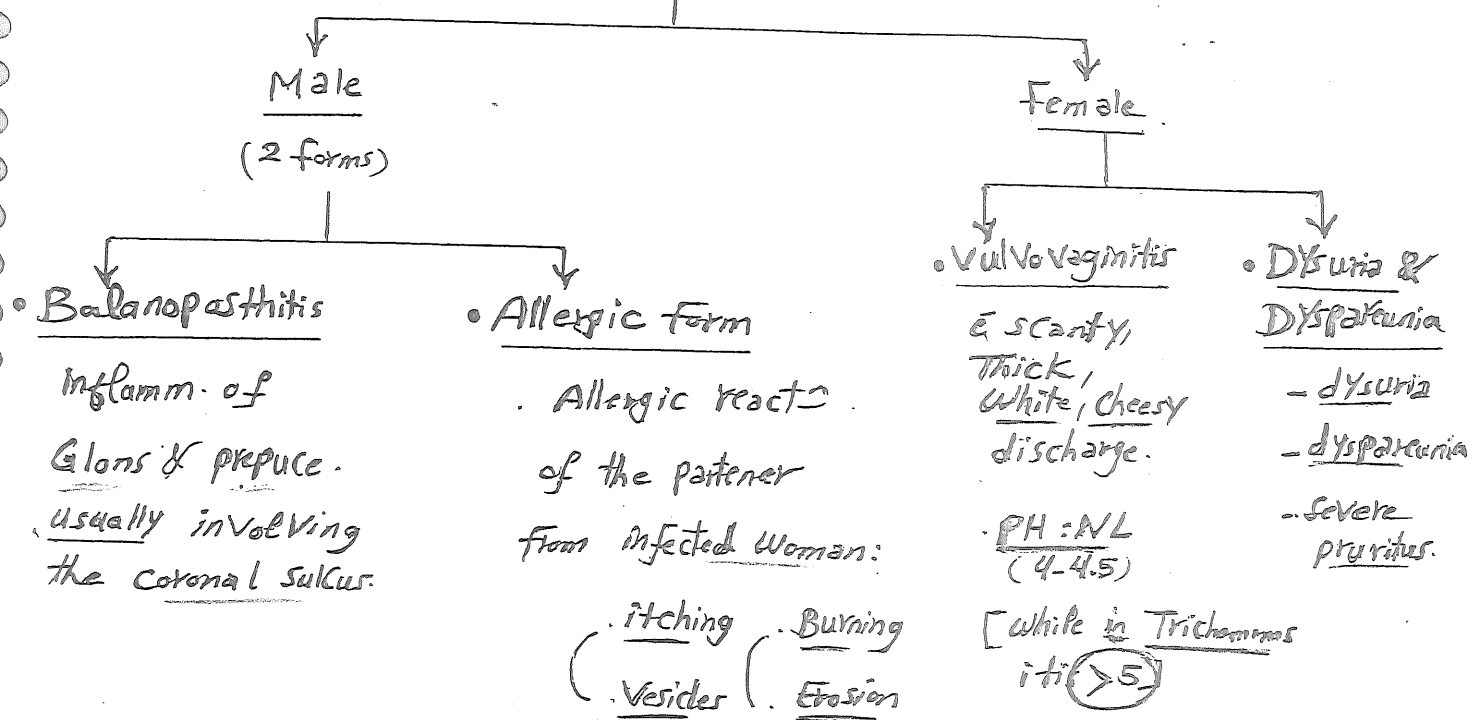 Male
(2 forms)
• Balanoposthitis
inflamm. of
Glans & prepuce.
. usually involving
the coronal sulcus.
• Allergic form
. Allergic react⌒.
of the partener
from infected woman:
. itching . Burning
. Vesicles . Erosion
Female
• Vulvovaginitis
c̄ scanty,
Thick,
White, Cheesy
discharge.
. PH : NL
(4-4.5)
[while in Trichomonas
itis >5]
• Dysuria &
Dyspareunia
- dysuria
- dyspareunia
- severe
pruritus.